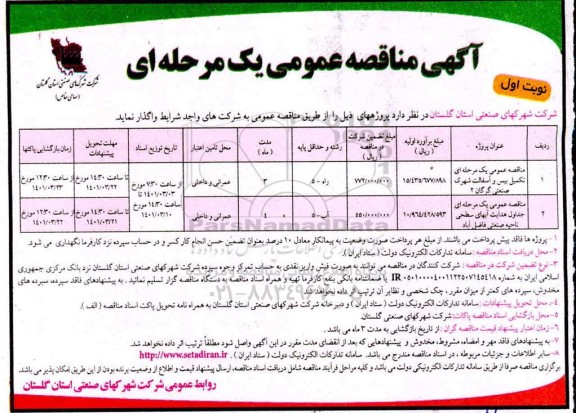 آگهی مناقصه عمومی یک مرحله ای
نوبت اول
شرکت شهرکهای صنعتی استان گلستان
(سهامی خاص)
شرکت شهرکهای صنعتی استان گلستان در نظر دارد پروژههای ذیل را از طریق مناقصه عمومی به شرکت های واجد شرایط واگذار نماید.
ردیف عنوان پروژه مبلغ برآورد اولیه (ریال) مبلغ تضمین شرکت در مناقصه (ریال) رشته و حداقل پایه مدت (ماه) محل تامین اعتبار تاریخ توزیع اسناد مهلت تحویل پیشنهادات زمان بازگشایی پاکتها
۱ مناقصه عمومی یک مرحله ای تکمیل بیس و آسفالت شهرک صنعتی گرگان ۲ ۱۵/۴۳۵/۶۷۷/۸۹۸ ۷۷۲/۰۰۰/۰۰۰ راه -۵ ۳ عمرانی و داخلی از ساعت ۷:۳۰ مورخ ۱۴۰۱/۰۳/۰۳ تا ساعت ۱۴:۳۰ مورخ ۱۴۰۱/۰۳/۱۰ تا ساعت ۱۴:۳۰ مورخ ۱۴۰۱/۰۳/۲۲ از ساعت ۱۲:۳۰ مورخ ۱۴۰۱/۰۳/۲۳
۲ مناقصه عمومی یک مرحله ای جداول هدایت آبهای سطحی ناحیه صنعتی فاضل آباد ۱۰/۹۶۴/۴۲۸/۵۹۳ ۵۵۰/۰۰۰/۰۰۰ آب-۵ ۴ عمرانی و داخلی تا ساعت ۱۴:۳۰ مورخ ۱۴۰۱/۰۳/۲۱ از ساعت ۱۲:۳۰ مورخ ۱۴۰۱/۰۳/۲۲
۱- پروژه ها فاقد پیش پرداخت می باشند. از مبلغ هر پرداخت صورت وضعیت به پیمانکار معادل ۱۰ درصد بعنوان تضمین حسن انجام کار کسر و در حساب سپرده نزد کارفرما نگهداری می شود.
۲- محل دریافت اسناد مناقصه: سامانه تدارکات الکترونیک دولت (ستاد ایران).
۳- نوع تضمین شرکت در مناقصه: شرکت کنندگان در مناقصه می توانند به صورت فیش واریز نقدی به حساب تمرکز وجوه سپرده شرکت شهرکهای صنعتی استان گلستان نزد بانک مرکزی جمهوری
اسلامی ایران به شماره IR یا ضمانتنامه بانکی بنفع کارفرما تهیه و همراه اسناد مناقصه به دستگاه مناقصه گزار تسلیم نمائید. به پیشنهادهای فاقد سپرده، سپرده های
مخدوش، سپرده های کمتر از میزان مقرر، چک شخصی و نظایر آن ترتیب اثر داده نخواهد شد.
۴- محل تحویل پیشنهادات: سامانه تدارکات الکترونیک دولت (ستاد ایران) و دبیرخانه شرکت شهرکهای صنعتی استان گلستان به همراه نامه تحویل پاکت اسناد مناقصه (الف).
۵- محل بازگشایی اسناد مناقصه پاکات: شرکت شهرکهای صنعتی استان گلستان.
۶- زمان اعتبار پیشنهاد قیمت مناقصه گران: از تاریخ بازگشایی به مدت ۳ ماه می باشد.
۷- به پیشنهادهای فاقد مهر و امضاء، مشروط، مخدوش و پیشنهادهایی که بعد از انقضای مدت مقرر در این آگهی واصل شود مطلقاً ترتیب اثر داده نخواهد شد.
۸- سایر اطلاعات و جزئیات مربوطه، در اسناد مناقصه مندرج می باشد. سامانه تدارکات الکترونیک دولت (ستاد ایران). http://www.setadiran.ir
برگزاری مناقصه صرفا از طریق سامانه تدارکات الکترونیکی دولت می باشد و کلیه مراحل فرآیند مناقصه شامل دریافت اسناد مناقصه، ارسال پیشنهاد قیمت و اطلاع از وضعیت برنده بودن از این طریق امکان پذیر می باشد.
روابط عمومی شرکت شهرکهای صنعتی استان گلستان